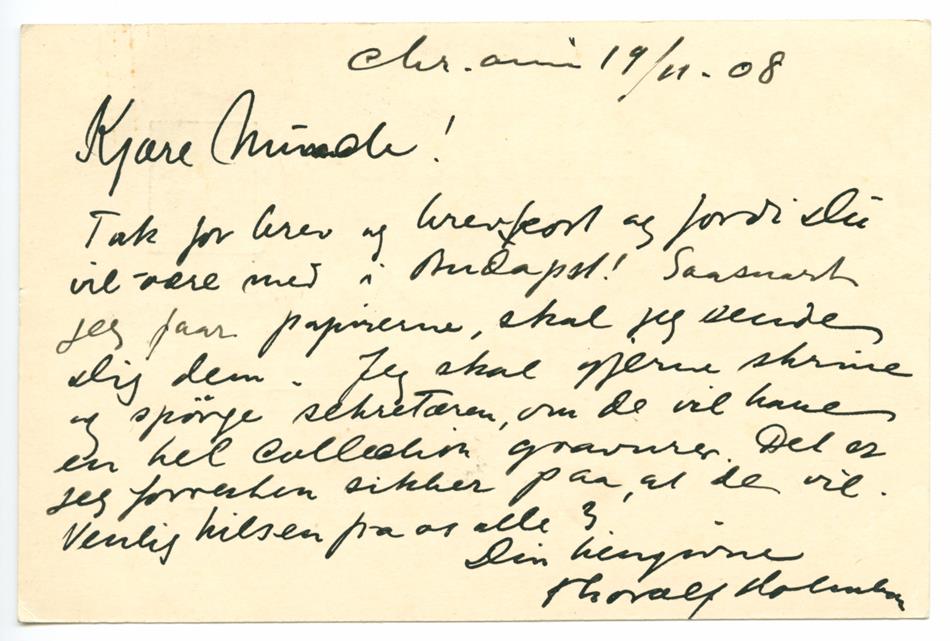 Chr.ania 19/11-08
Kjære Munch!
Tak for brev og brevkort og fordi Du
vil være med i Budapst! Saasnart
jeg faar papirerne, skal jeg sende
Dig dem. Jeg skal gjerne skrive
og spörge sekretæren, om de vil have
en hel Collection gravurer. Det er
jeg forresten sikker paa, at de vil.
Venlig hilsen fra os alle 3.
Din hengivne
Thorolf Holmboe